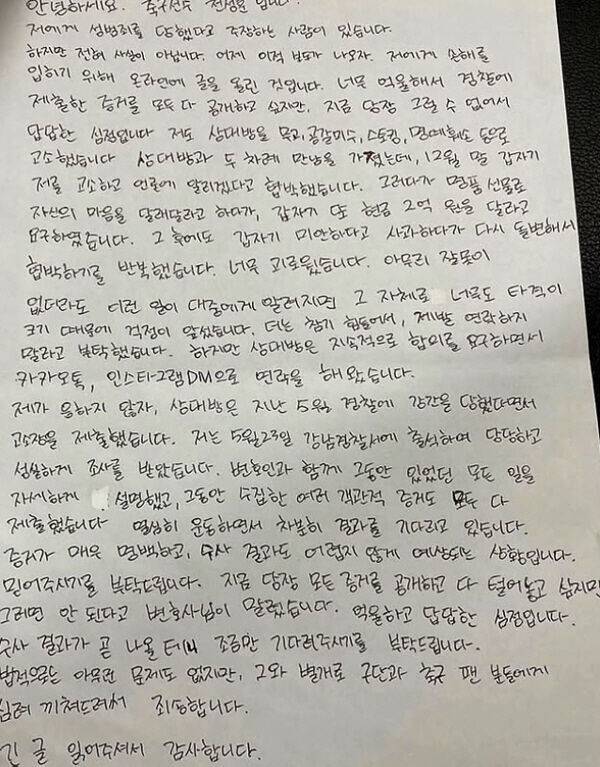 안녕하세요. 축구선수 천성훈입니다.
저에게 성범죄를 당했다고 주장하는 사람이 있습니다.
하지만 전혀 사실이 아닙니다. 어제 이적 보도가 나오자, 저에게 손해를
입히기 위해 온라인에 글을 올린 것입니다. 너무 억울해서 경찰에
제출한 증거를 모두 다 공개하고 싶지만, 지금 당장 그럴 수 없어서
답답한 심정입니다 저도 상대방을 무고, 공갈미수, 스토킹, 명예훼손 등으로
고소했습니다 상대방과 두 차례 만남을 가졌는데, 12월 말 갑자기
저를 고소하고 언론에 알리겠다고 협박했습니다. 그러다가 명품 선물로
자신의 마음을 달래달라고 하다가, 갑자기 또 현금 2억 원을 달라고
요구하였습니다. 그 후에도 갑자기 미안하다고 사과하다가 다시 돌변해서
협박하기를 반복했습니다. 너무 괴로웠습니다. 아무리 잘못이
없더라도 이런 일이 대중에게 알려지면 그 자체로 너무도 타격이
크기 때문에 걱정이 앞섰습니다. 더는 참기 힘들어서, 제발 연락하지
말라고 부탁했습니다. 하지만 상대방은 지속적으로 합의를 요구하면서
카카오톡, 인스타그램DM으로 연락을 해 왔습니다.
제가 응하지 않자, 상대방은 지난 5월 경찰에 강간을 당했다면서
고소장을 제출했습니다. 저는 5월23일 강남경찰서에 출석하여 당당하고
성실하게 조사를 받았습니다. 변호인과 함께 그동안 있었던 모든 일을
자세하게 설명했고, 그동안 수집한 여러 객관적 증거도 모두 다
제출했습니다 열심히 운동하면서 차분히 결과를 기다리고 있습니다.
증거가 매우 명백하고, 수사 결과도 어렵지 않게 예상되는 상황입니다.
믿어주시기를 부탁드립니다. 지금 당장 모든 증거를 공개하고 다 털어놓고 싶지만
그러면 안 된다고 변호사님이 말렸습니다. 억울하고 답답한 심정입니다.
수사 결과가 곧 나올 테니 조금만 기다려주시기를 부탁드립니다.
법적으로는 아무런 문제도 없지만, 그와 별개로 구단과 축구 팬 분들에게
심려 끼쳐드려서 죄송합니다.
긴 글 읽어주셔서 감사합니다.